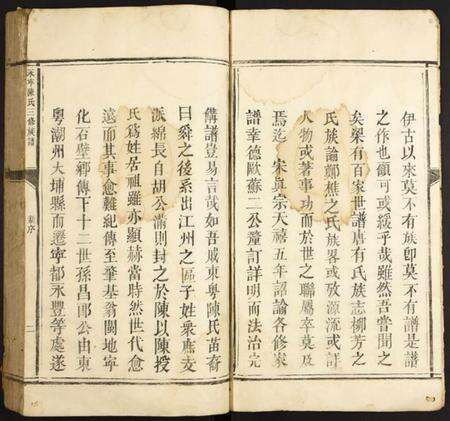 伊古以來莫不有族即莫不有譜是譜
之作也顧可或緩乎哉雖然吾嘗聞之
矣梁有百家世譜唐有氏族志柳芳之
氏族論鄭樵之氏族畧或攷源流或詳
人物或著事功而於世之聯屬率莫及
焉迄 宋真宗天禧五年詔諭各修家
譜幸德歐蘇二公釐訂詳明而法治完
備譜豈易言哉如吾戚東粵陳氏苗裔
曰舜之後系出江州之區子姓衆庶支
派綿長自胡公滿則封之於陳以陳授
氏爲姓居祖雖亦顯赫當時然世代愈
遠而其事愈難紀傳至肇基翁闢地寧
化石壁鄉傳下十二世孫昌郎公由東
粵潮州大埔縣而遷寧都永豐等處遂
永寧陳氏三修族譜
舊序
二